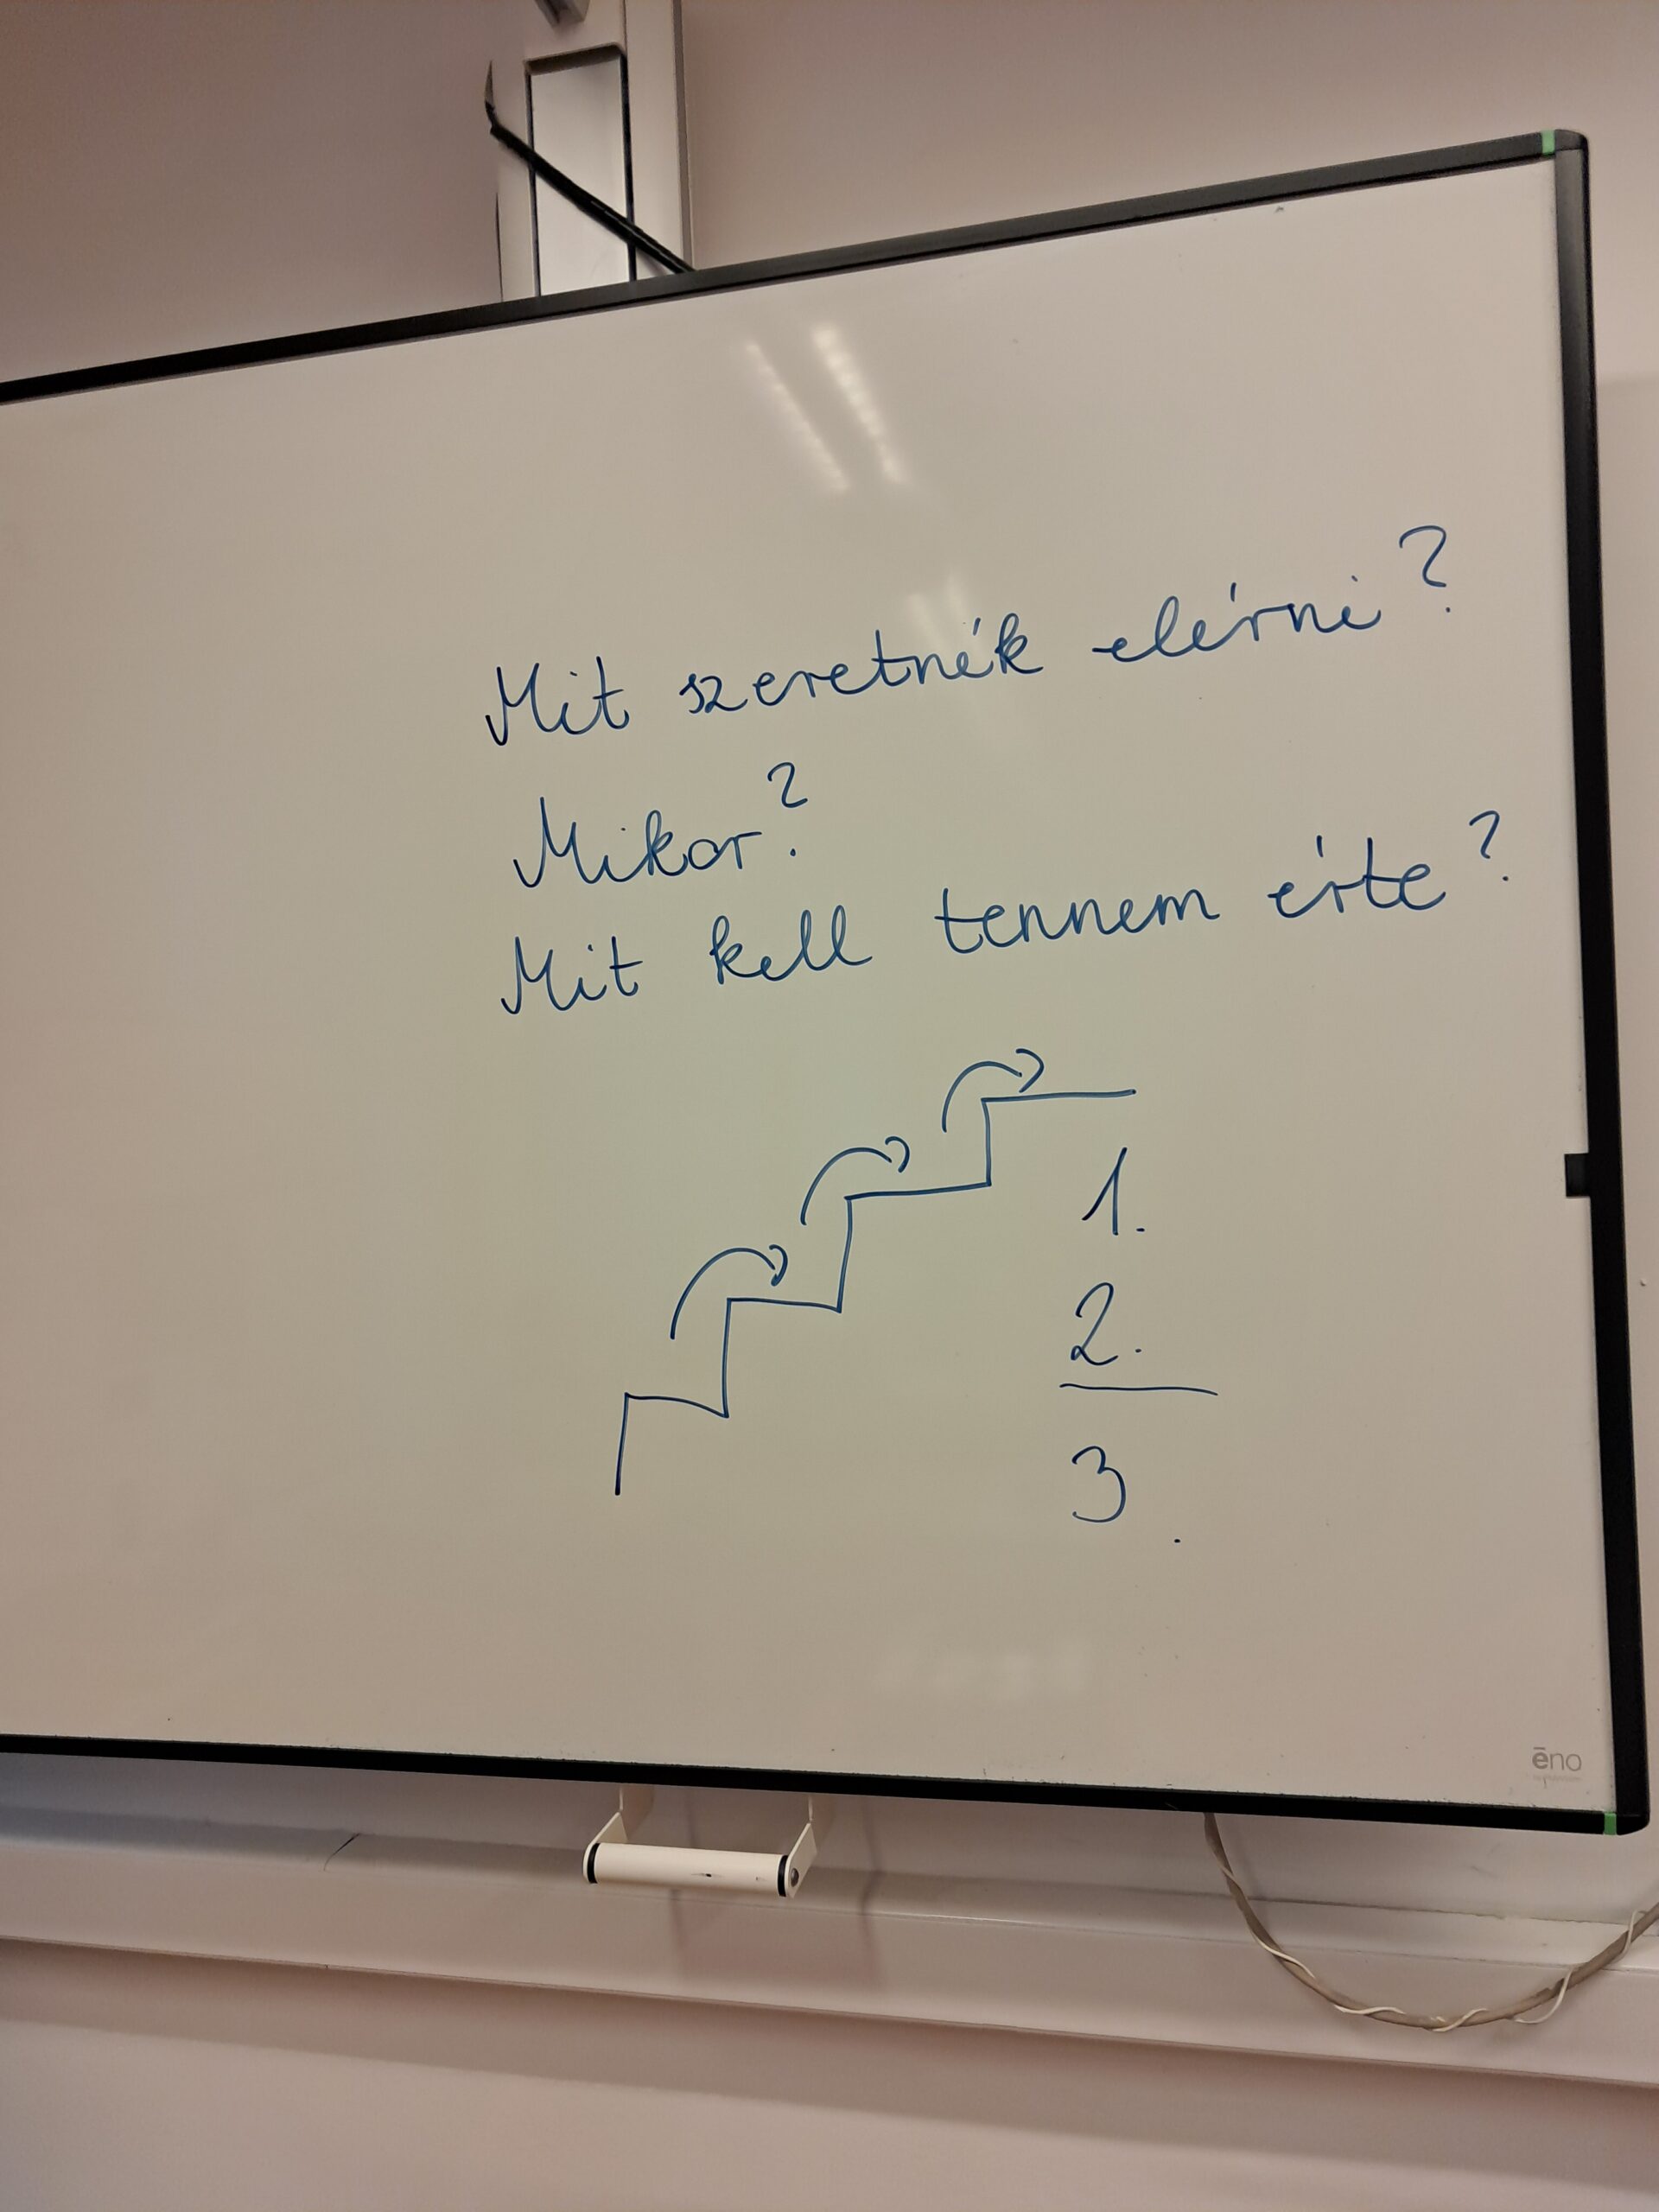 Mit szeretnék elérni?
Mikor?
Mit kell tennem érte?
1.
2.
3.
ēno